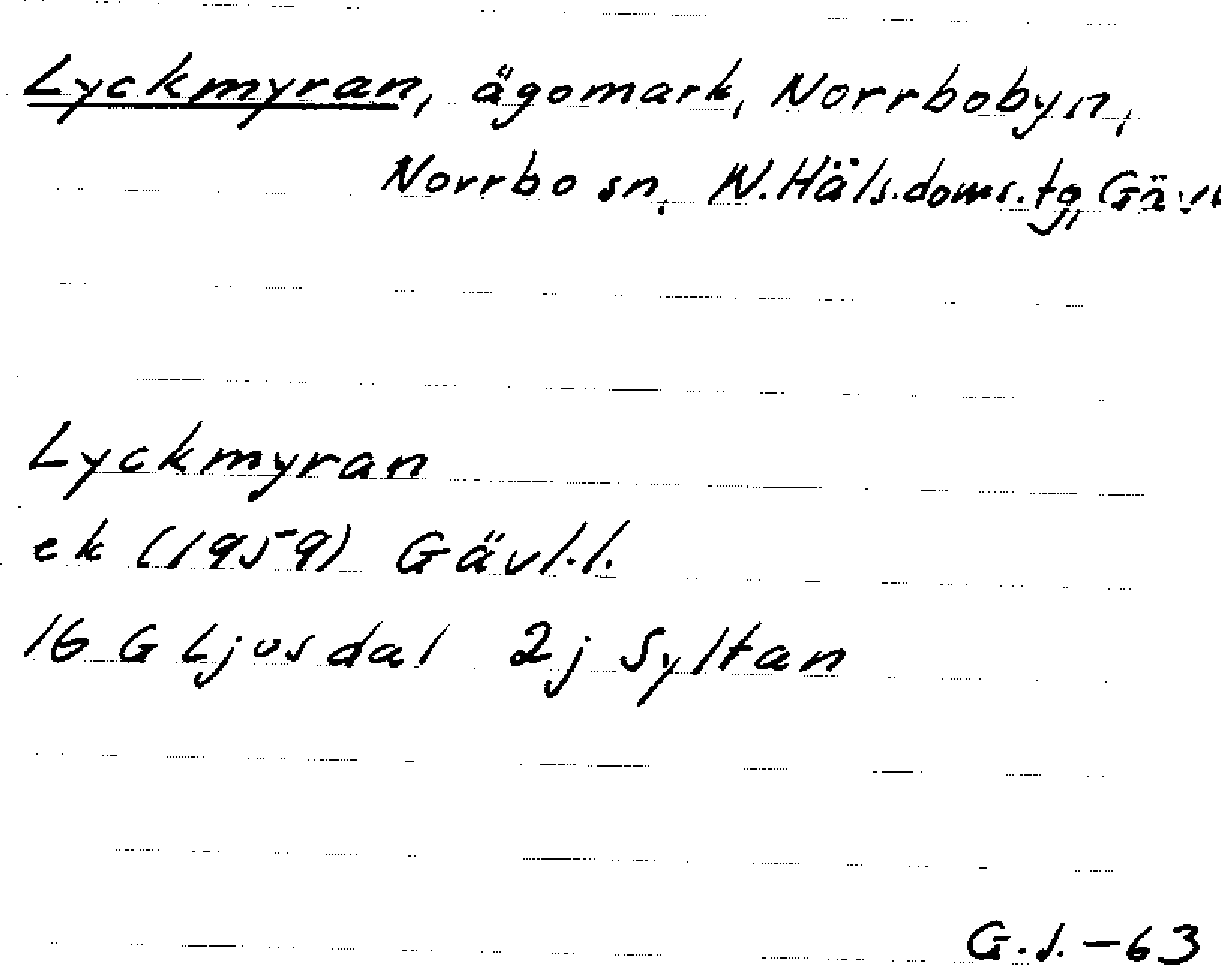 Lyckmyran, ägomark, Norrbobyn,
Norrbo sn, N. Häls. doms. tg,
Lyckmyran
ek (1959) Gävl.l.
16 G Ljusdal 2j Syltan
G.J. -63